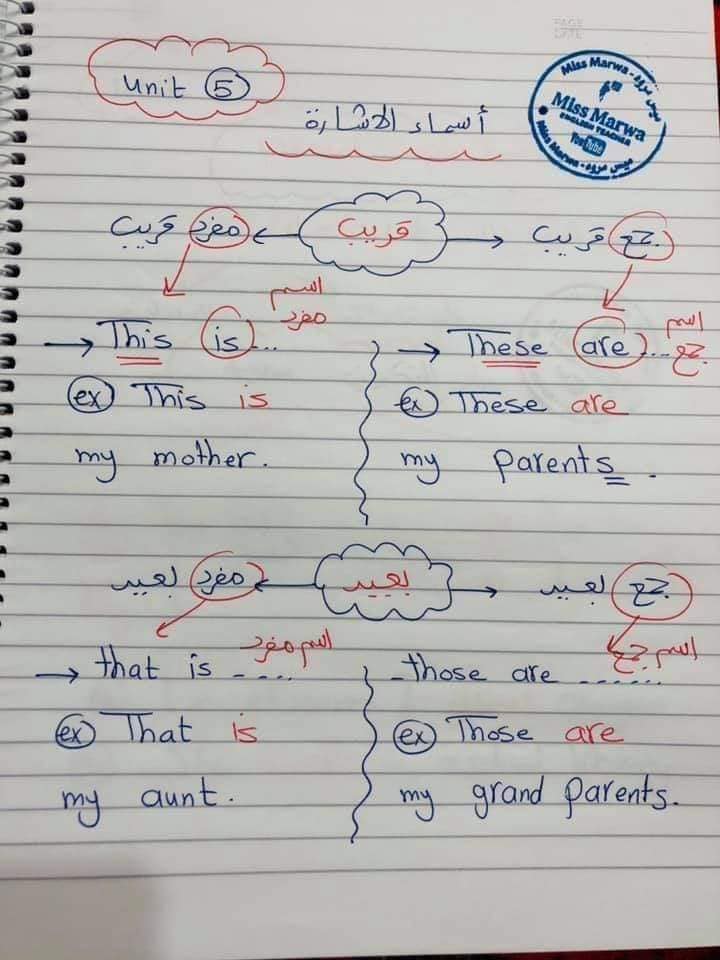 PAGE
DATE
Unit 5
أسماء الاشارة
Miss Marwa - ميس مروه
Miss Marwa
ENGLISH TEACHER
YouTube
Miss Marwa - ميس مروه
مفرد قريب ← قريب → جمع قريب
→ This is ... اسم مفرد
→ These are ... اسم جمع
ex This is
my mother.
ex These are
my parents.
مفرد بعيد ← بعيد → جمع بعيد
→ that is ---... اسم مفرد
-those are ------- اسم جمع
ex That is
my aunt.
ex Those are
my grand parents.